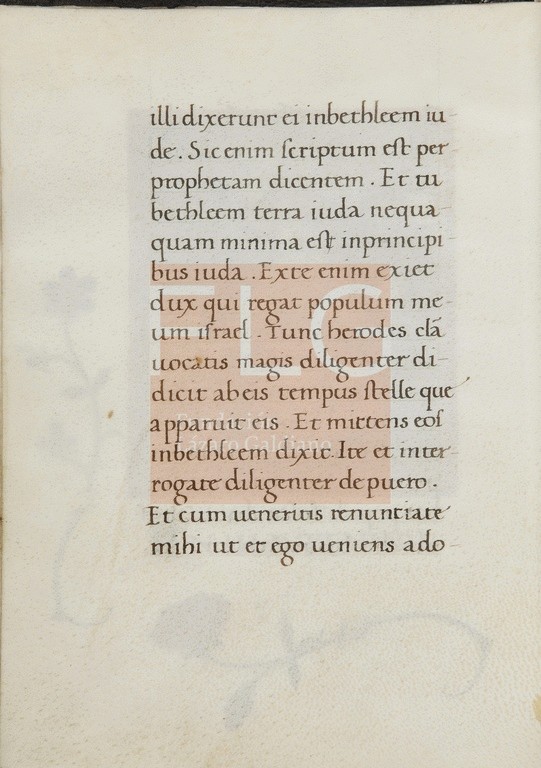 illi dixerunt ei inbethleem iu-
de. Sic enim scriptum est per
prophetam dicentem. Et tu
bethleem terra iuda nequa-
quam minima est inprincipi-
bus iuda. Exte enim exiet
dux qui regat populum me-
um israel. Tunc herodes clā
uocatis magis diligenter di-
dicit abeis tempus stelle que
apparuit eis. Et mittens eos
inbethleem dixit. Ite et inter-
rogate diligenter depuero.
Et cum ueneritis renuntiate
mihi ut et ego ueniens ado-
FLG
Fundación
Lázaro Galdiano